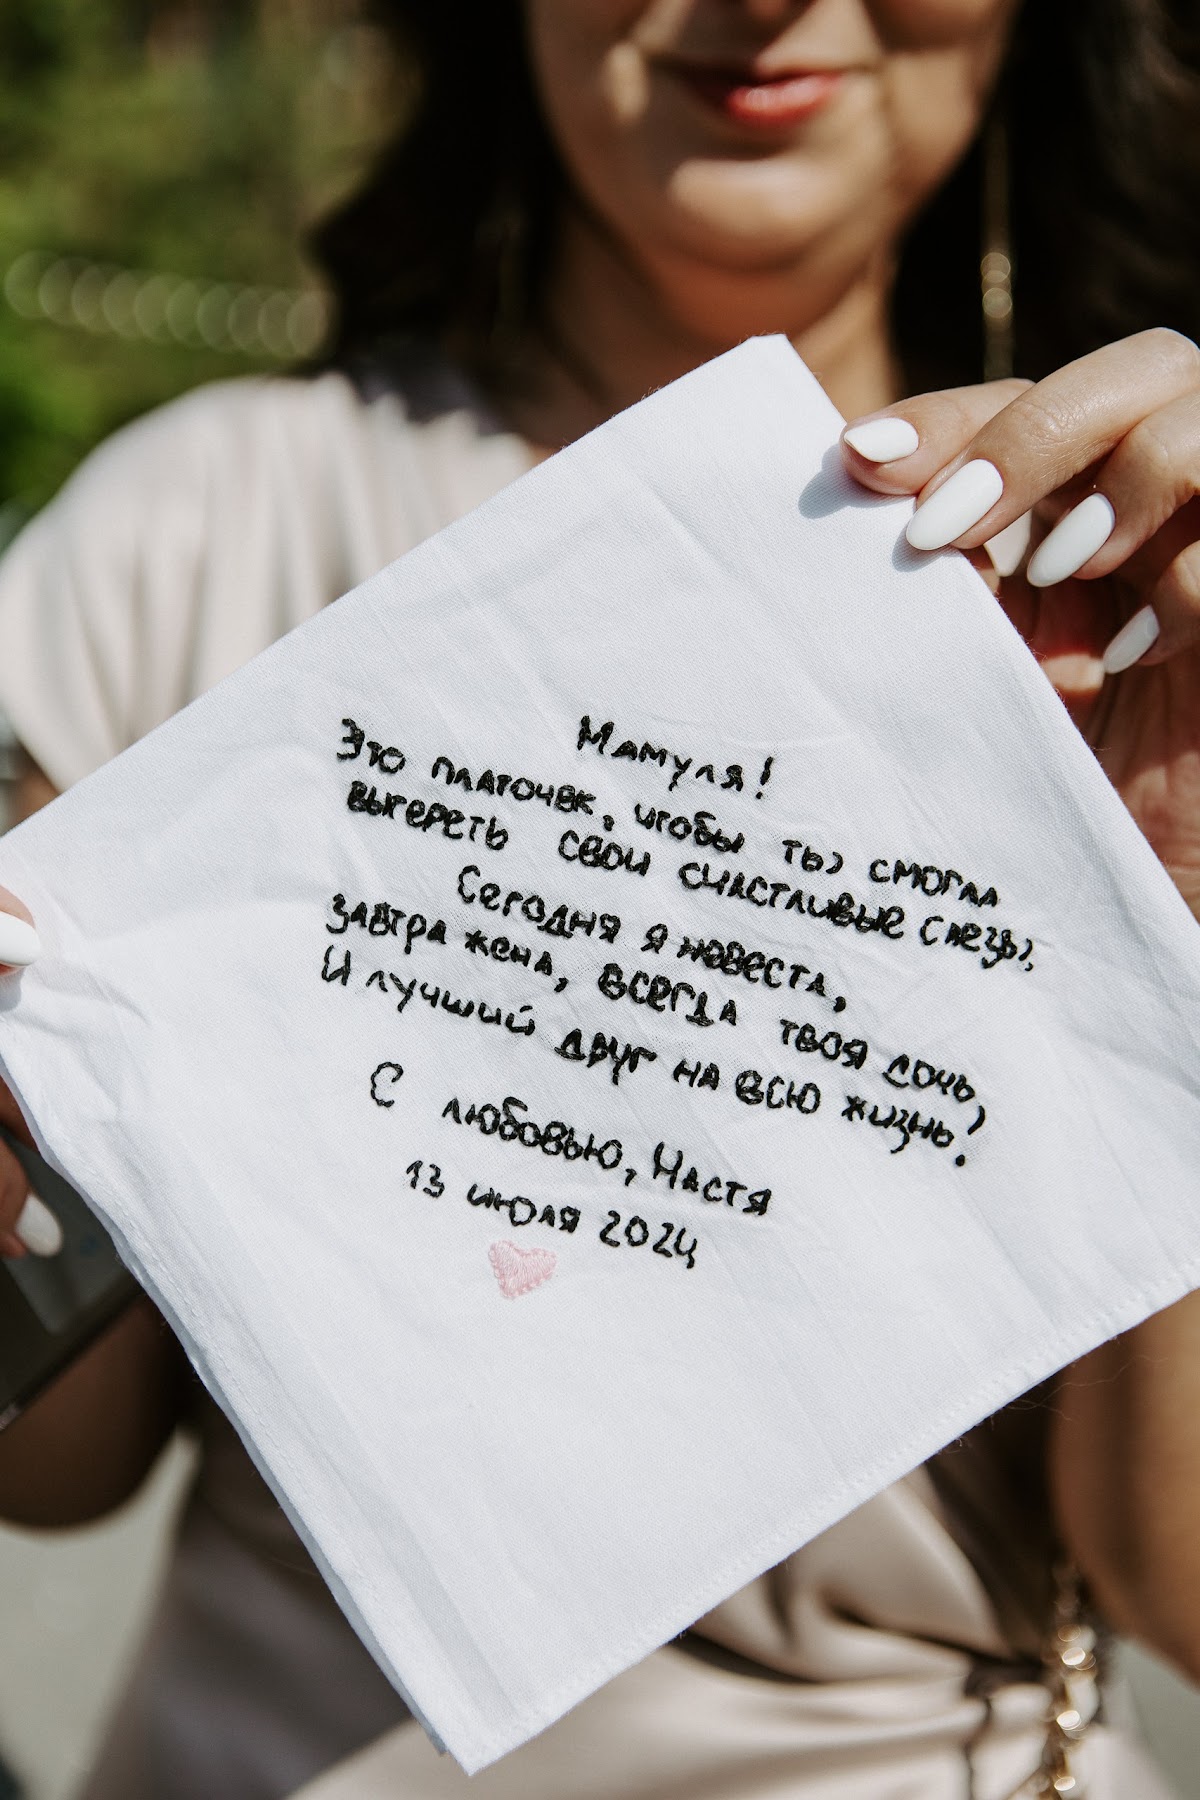 Мамуля!
Это платочек, чтобы ты смогла
вытереть свои счастливые слезы.
Сегодня я невеста,
завтра жена, всегда твоя дочь,
И лучший друг на всю жизнь!
С любовью, Настя
13 июля 2024